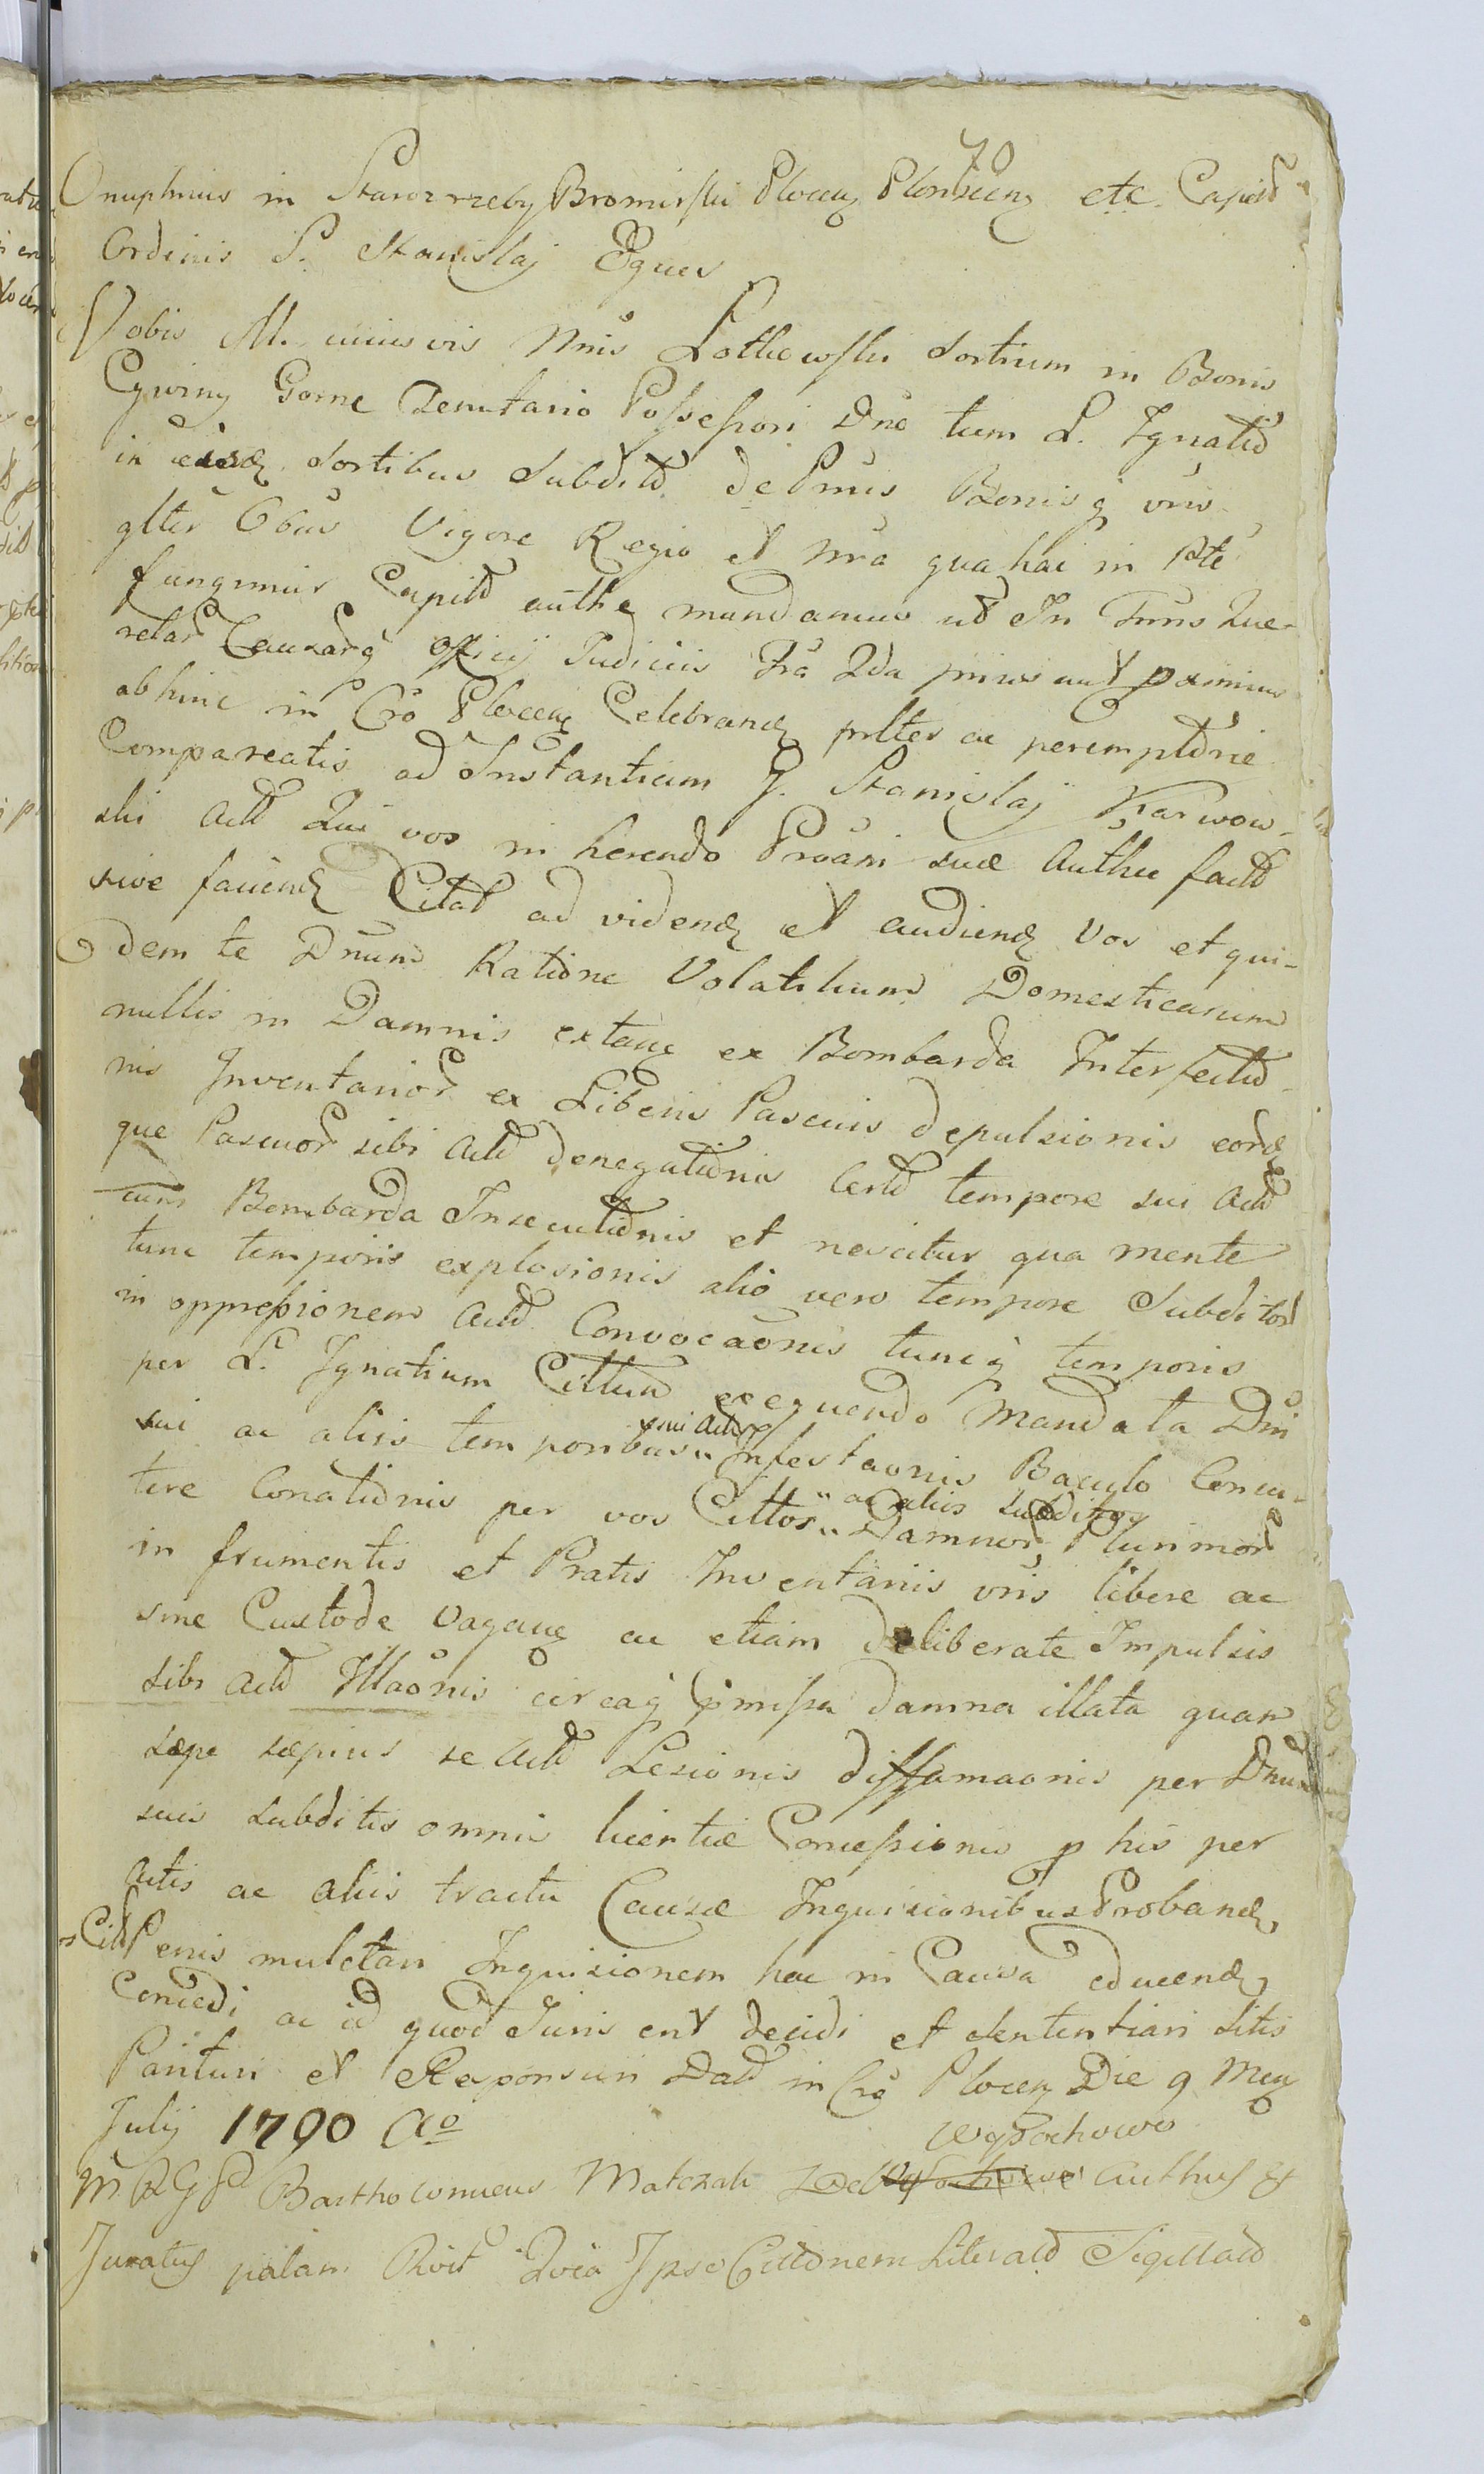 70
Onuphrius in Starozrzeby Bromirski Plocen Plonscen etc. Capit
Ordinis S. Stanislaj Eques
Vobis M. cuiusvis Nnis Lothowski Sortium in Bonis
Cywiny Gorne Tenutario Possessori Dno tum L. Ignatio
in eisd Sortibus Subdito de Pnnis Bonisq vris
glter Obus Vigore Regio et nra qua hac in Pte
fungimur Capitli authe mandamus ut In Trnis Que-
relar Causarq Officij Judiciis Fra 2da prius aut proximius
abhinc in Cro Plocen Celebrand prlter ac peremptorie
Compareatis ad Instantiam G. Stanislaj Karwow-
ski Act Qui vos in herendo Proani suæ Authe fact
sive faciend Citat ad vidend et audiend Vos et qui-
dem te Dnum Ratione Volatilium Domesticarum
nullis in Damnis extan ex Bombarda Interfectio-
nis Inventarior ex Liberis Pascuis depulsionis eord
que Pascuor sibi Act denegationis Certo tempore sui Act
cum Bombarda Insecutionis et nescitur qua mente
tunc temporis explosionis alio vero tempore Subditor
in oppressionem Act Convocaonis tuncq temporis
per L. Ignatium Cittum exequendo Mandata Dni
sui ac aliis temporibus sui Act Infestaonis Baculo Concu-
tere Conationis per vos Cittos ac aliis subditos Damnor Plurimor
in frumentis et Pratis Inventariis vris libere ac
sine Custode vagan ac etiam deliberate Impulsis
sibi Act Illaonis circaq pmissa damna illata quam
sæpe sæpius se Act Lesionis diffamaonis per Dnum
suis subditis omnis licentiæ Concessionis p his per
Actis ac aliis tractu Causæ Inquisionibus Proband
Citt Penis mulctari Inquisionem hac in Causa educend
Concedi ac id quod Juris erit decidi et sententiari Litis
Parituri et Responsuri Dat in Cro Plocen Die 9 Men
July 1790 Ao
M R G P Bartholomeus Matczak De Wyssochowo Authus Et
Juratus palam Rcvit Quia Ipse Cittonem Literato Sigillato